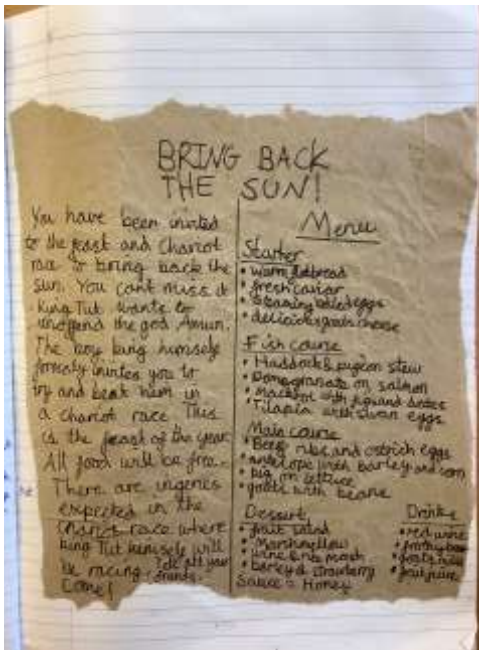 BRING BACK
THE SUN!
You have been invited
to the feast and Chariot
race to bring back the
sun. You cant miss it
King Tut wants to
the god Amun.
The boy king himself
invites you to
try and beat him in
a chariot race This
is the feast of the year
All food will be free.
There are
expected in the
chariot race where
king Tut himself will
be racing. Tell all your
friends.
Come!
Menu
Starter
• warm flatbread
• fresh caviar
• Steaming boiled eggs
• delicious goats cheese
Fish course
• Haddock & pigeon stew
• Pomegranate on salmon
• Mackrel with figs and dates
• Tilapia with swan eggs
Main course
• Beef ribs and ostrich eggs
• antelope with barley and corn
• pig on lettuce
• goats with beans
Dessert
• fruit salad
• Marshmellow
• barley & strawberry
Sauce = Honey
Drinks
• red wine
• goats milk
• fruit juice